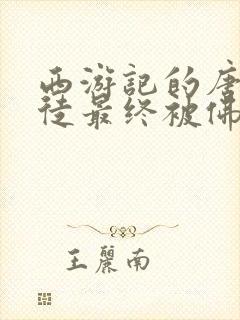 西游記的唐
徒最终被佛
王麗南